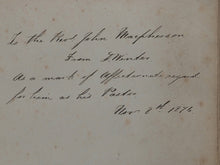 To the Revd John Macpherson
From F Winter
As a mark of affectionate regard
for him as his Pastor
Nov 8th 1876